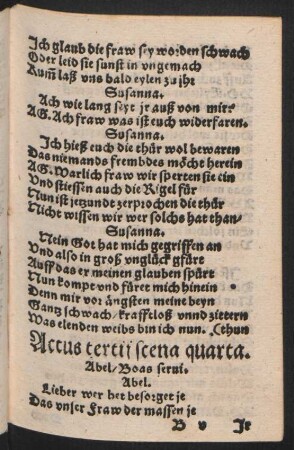 Ich glaub die fraw sey worden schwach
Oder leid sie sunst in vngemach
Kum̃ laß vns bald eylen zu jhr
Susanna.
Ach wie lang seyt jr auß von mir
AG. Ach fraw was ist euch widerfaren.
Susanna.
Ich hieß euch die thür wol bewaren
Das niemands frembdes möcht herein
AG. Warlich fraw wir sperten sie ein
Vnd stiessen auch die Rigel für
Nun ist jetzundt zerprochen die thür
Nicht wissen wir wer solchs hat than/
Susanna.
Mein Got hat mich gegriffen an
Vnd also in groß vnglück gfürt
Auff das er meinen glauben spürt
Nun kompt vnd füret mich hinein
Denn mir vor ängsten meine beyn
Gantz schwach/ krafftloß vnnd zietern
Was elenden weibs bin ich nun. (thun
Actus tertij scena quarta.
Abel/ Boas serui.
Abel.
Lieber wer het besorget je
Das vnser Fraw der massen je
B v Ir